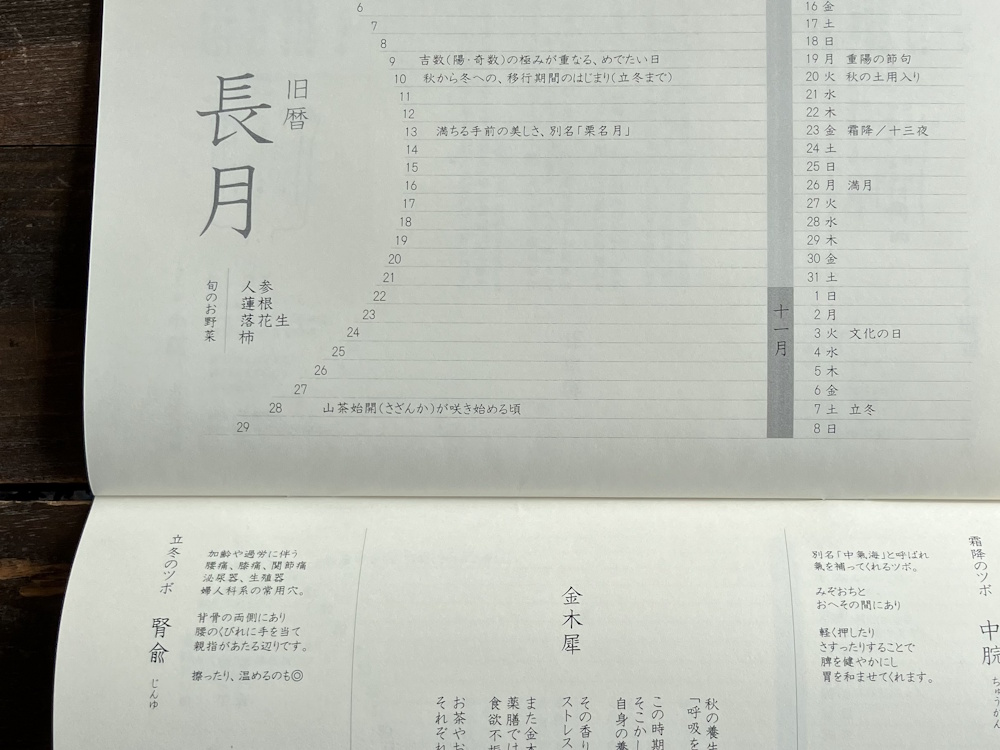 旧暦
長月
旬のお野菜
人参
蓮根
落花生
柿
6
7
8
9 吉数(陽・奇数)の極みが重なる、めでたい日
10 秋から冬への、移行期間のはじまり(立冬まで)
11
12
13 満ちる手前の美しさ、別名「栗名月」
14
15
16
17
18
19
20
21
22
23
24
25
26
27
28 山茶始開(さざんか)が咲き始める頃
29
十一月
16 金
17 土
18 日
19 月 重陽の節句
20 火 秋の土用入り
21 水
22 木
23 金 霜降／十三夜
24 土
25 日
26 月 満月
27 火
28 水
29 木
30 金
31 土
1 日
2 月
3 火 文化の日
4 水
5 木
6 金
7 土 立冬
8 日
霜降のツボ
中脘 ちゅうかん
別名「中氣海」と呼ばれ
氣を補ってくれるツボ。
みぞおちと
おへその間にあり
軽く押したり
さすったりすることで
脾を健やかにし
胃を和ませてくれます。
金木犀
秋の養生
「呼吸を
この時期
そこかし
自身の養
その香り
ストレス
また金木
薬膳では
食欲不振
お茶やお
それぞれ
立冬のツボ
腎兪 じんゆ
加齢や過労に伴う
腰痛、膝痛、関節痛
泌尿器、生殖器
婦人科系の常用穴。
背骨の両側にあり
腰のくびれに手を当て
親指があたる辺りです。
擦ったり、温めるのも◎